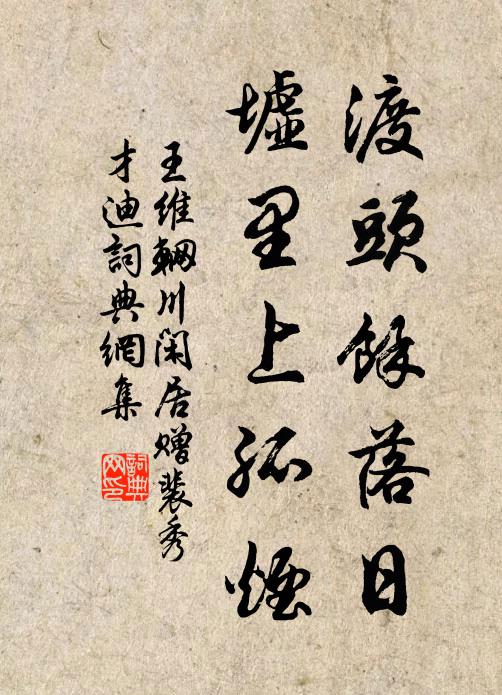 渡頭餘落日
墟里上孤煙
王維輞川閑居贈裴秀
才迪詞典網集
詞典
网印